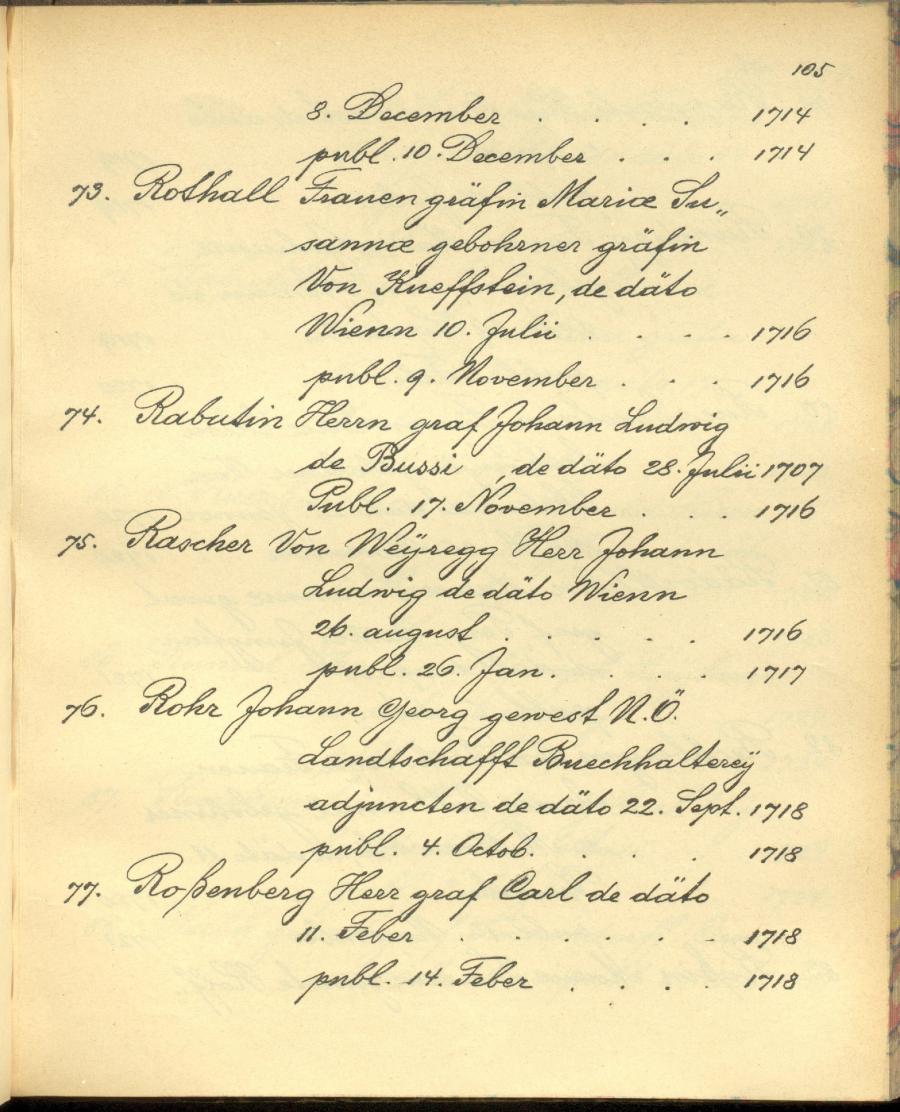 105
8. December . . . . 1714
publ. 10. December . . . 1714
73. Rothall Frauen gräfin Mariæ Su„
sannæ gebohrner gräfin
Von Kueffstein, de däto
Wienn 10. Julii . . . . 1716
publ. 9. November . . . 1716
74. Rabutin Herrn graf Johann Ludwig
de Bussi, de däto 28. Julii 1707
Publ. 17. November . . . 1716
75. Rascher Von Weÿregg Herr Johann
Ludwig de däto Wienn
26. august . . . . . 1716
publ. 26. Jan. . . . . 1717
76. Rohr Johann Georg gewest N.Ö.
Landtschafft Buechhaltereÿ
adjuncten de däto 22. Sept. 1718
publ. 4. Octob. . . . 1718
77. Roßenberg Herr graf Carl de däto
11. Feber . . . . . . 1718
publ. 14. Feber . . . . 1718